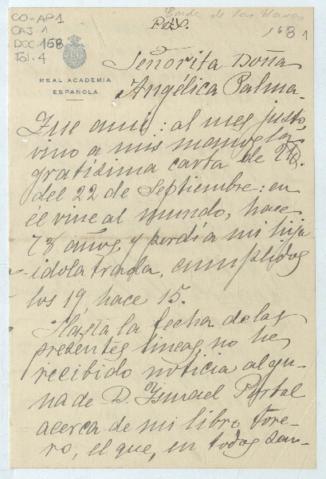 CO-AP1
CAJ. 1
DOC. 168
fol. 4
Conde de las Navas
168 1
REAL ACADEMIA
ESPAÑOLA.
Señorita Doña
Angélica Palma
Fue así: al mes justo,
vino a mis manos la
gratísima carta de
del 22 de Septiembre: en
él vine al mundo, hace
73 años, y perdía mi hija
idolatrada, cumplidos
los 19, hace 15.
Hasta la fecha de las
presentes líneas no he
recibido noticia algu-
na de D. Ismael Portal
acerca de mi libro Tore-
ro, el que, en todos